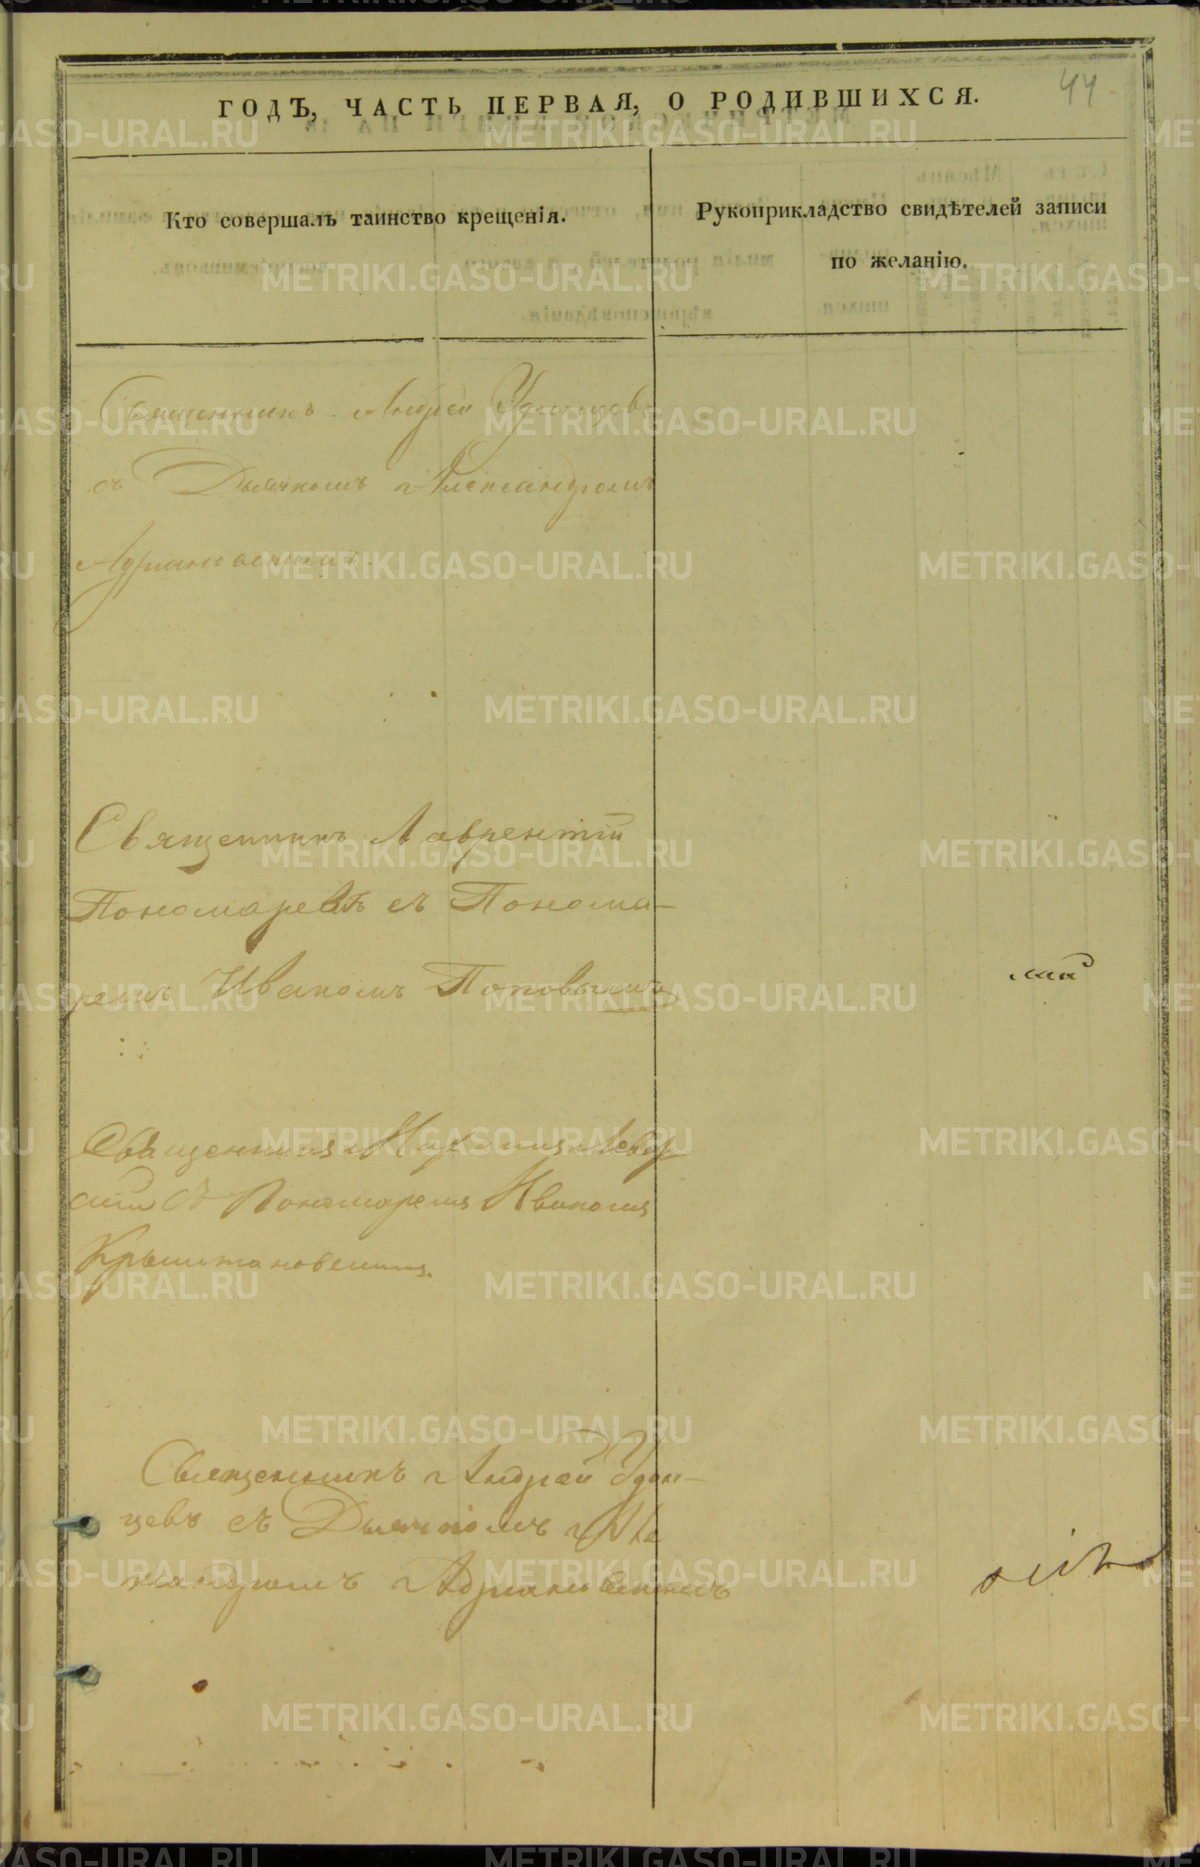 44
ГОДЪ, ЧАСТЬ ПЕРВАЯ, О РОДИВШИХСЯ.
Кто совершалъ таинство крещенія.
Рукоприкладство свидѣтелей записи
по желанію.
Священникъ Андрей
съ Дьячкомъ Александромъ
Адріановскимъ.
Священникъ Лаврентій
Пономаревъ съ Понома-
ремъ Иваномъ Поповымъ
Священникъ
съ Пономаремъ Иваномъ
Священникъ Андрей Удин-
цевъ съ Дьячкомъ Але
ксандромъ Адріановскимъ
METRIKI.GASO-URAL.RU